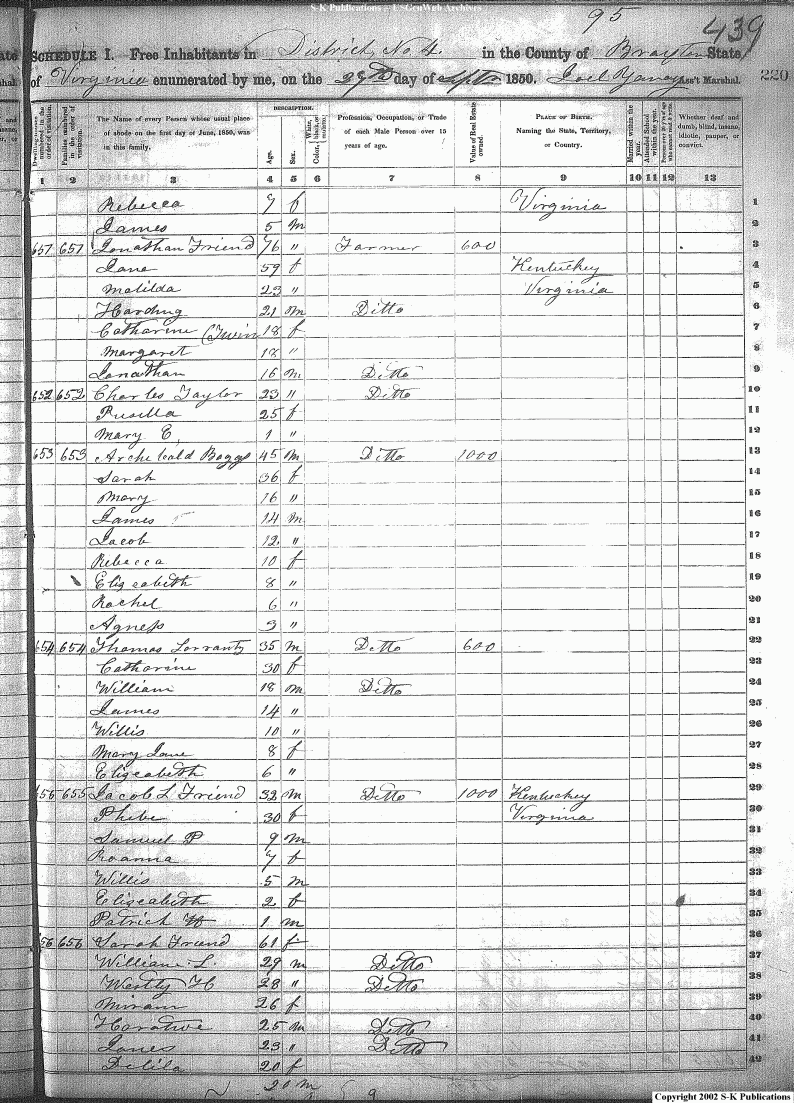 S-K Publications - USGenWeb Archives
95
439
SCHEDULE I. Free Inhabitants in District No 4 in the County of Braxton State
of Virginia enumerated by me, on the 29th day of Septr 1850. Joel Yancey Ass't Marshal.
220
Dwelling-houses numbered in the order of visitation.
Families numbered in the order of visitation.
The Name of every Person whose usual place of abode on the first day of June, 1850, was in this family.
DESCRIPTION.
Age.
Sex.
Color, White, black, or mulatto.
Profession, Occupation, or Trade of each Male Person over 15 years of age.
Value of Real Estate owned.
PLACE OF BIRTH. Naming the State, Territory, or Country.
Married within the year.
Attended School within the year.
Persons over 20 y'rs of age who cannot read & write.
Whether deaf and dumb, blind, insane, idiotic, pauper, or convict.
1 2 3 4 5 6 7 8 9 10 11 12 13
Rebecca 7 f Virginia 1
James 5 m 2
651 651 Jonathan Friend 76 " Farmer 600 3
Jane 59 f Kentuckey 4
Matilda 23 " Virginia 5
Harding 21 m Ditto 6
Catharine (Twin 18 f 7
Margaret 18 " 8
Jonathan 16 m Ditto 9
652 652 Charles Taylor 23 " Ditto 10
Rusilla 25 f 11
Mary E, 1 " 12
653 653 Archibald Boggs 45 m Ditto 1000 13
Sarah 36 f 14
Mary 16 " 15
James 14 m 16
Jacob 12 " 17
Rebecca 10 f 18
Elizeabeth 8 " 19
Rachel 6 " 20
Agness 3 " 21
654 654 Thomas Lorrantz 35 m Ditto 600 22
Catharine 30 f 23
William 18 m Ditto 24
James 14 " 25
Willis 10 " 26
Mary Jane 8 f 27
Elizeabeth 6 " 28
655 655 Jacob L Friend 32 m Ditto 1000 Kentuckey 29
Phebe 30 f Virginia 30
Samuel P 9 m 31
Roanna 7 f 32
Willis 5 m 33
Elizeabeth 2 f 34
Patrick H 1 m 35
656 656 Sarah Friend 61 f 36
William L 29 m Ditto 37
H 28 " Ditto 38
Miriam 26 f 39
25 m Ditto 40
Jones 23 " Ditto 41
Delila 20 f 42
20 m
9
Copyright 2002 S-K Publications